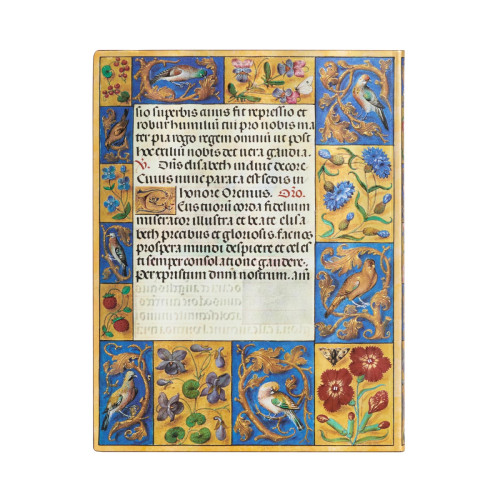 sio superbis cuius fit repressio et
robur humilium tu pro nobis ma
ter pia rogo regem omnium ut post
hoc exilium nobis det vera gaudia.
V. Dns elisabeth induit decore
Cuius nunc parata est sedis in
honore Oremus. Oro.
Deus tuorum corda fidelium
miserator illustra et beate elisa
beth precibus et gloriosis fac nos
prospera mundi despicere et celes
ti semper consolatione gaudere.
per xpristum dnm nostrum. am